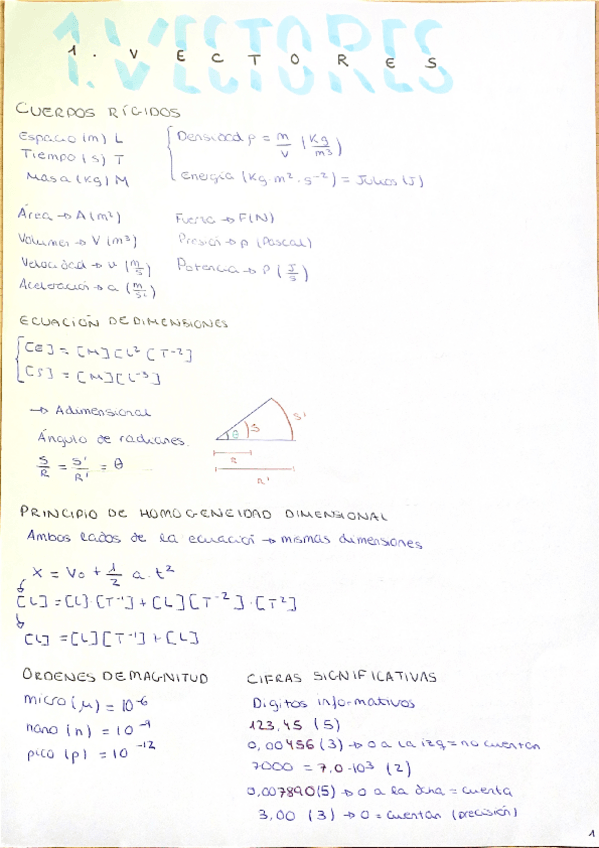 1. VECTORES
CUERPOS RÍGIDOS
Espacio (m) L
Tiempo (s) T
Masa (Kg) M
Densidad ρ = m/V (Kg/m³)
Energía (Kg·m²·s⁻²) = Julios (J)
Área → A (m²)
Volumen → V (m³)
Velocidad → v (m/s)
Aceleración → a (m/s²)
Fuerza → F (N)
Presión → p (Pascal)
Potencia → P (J/s)
ECUACIÓN DE DIMENSIONES
[E] = [M][L² [T⁻²]
[S] = [M][L⁻³]
→ Adimensional
Ángulo de radianes.
S/R = S'/R' = θ
θ S S'
R
R'
PRINCIPIO DE HOMOGENEIDAD DIMENSIONAL
Ambos lados de la ecuación → mismas dimensiones
x = v₀ + 1/2 a · t²
[L] = [L]·[T⁻¹] + [L][T⁻²]·[T²]
[L] = [L][T⁻¹] + [L]
ORDENES DE MAGNITUD
micro (μ) = 10⁻⁶
nano (n) = 10⁻⁹
pico (p) = 10⁻¹²
CIFRAS SIGNIFICATIVAS
Dígitos informativos
123,45 (5)
0,00456 (3) → 0 a la izq = no cuentan
7000 = 7,0·10³ (2)
0,007890 (5) → 0 a la dcha = cuenta
3,00 (3) → 0 = cuentan (precisión)
1